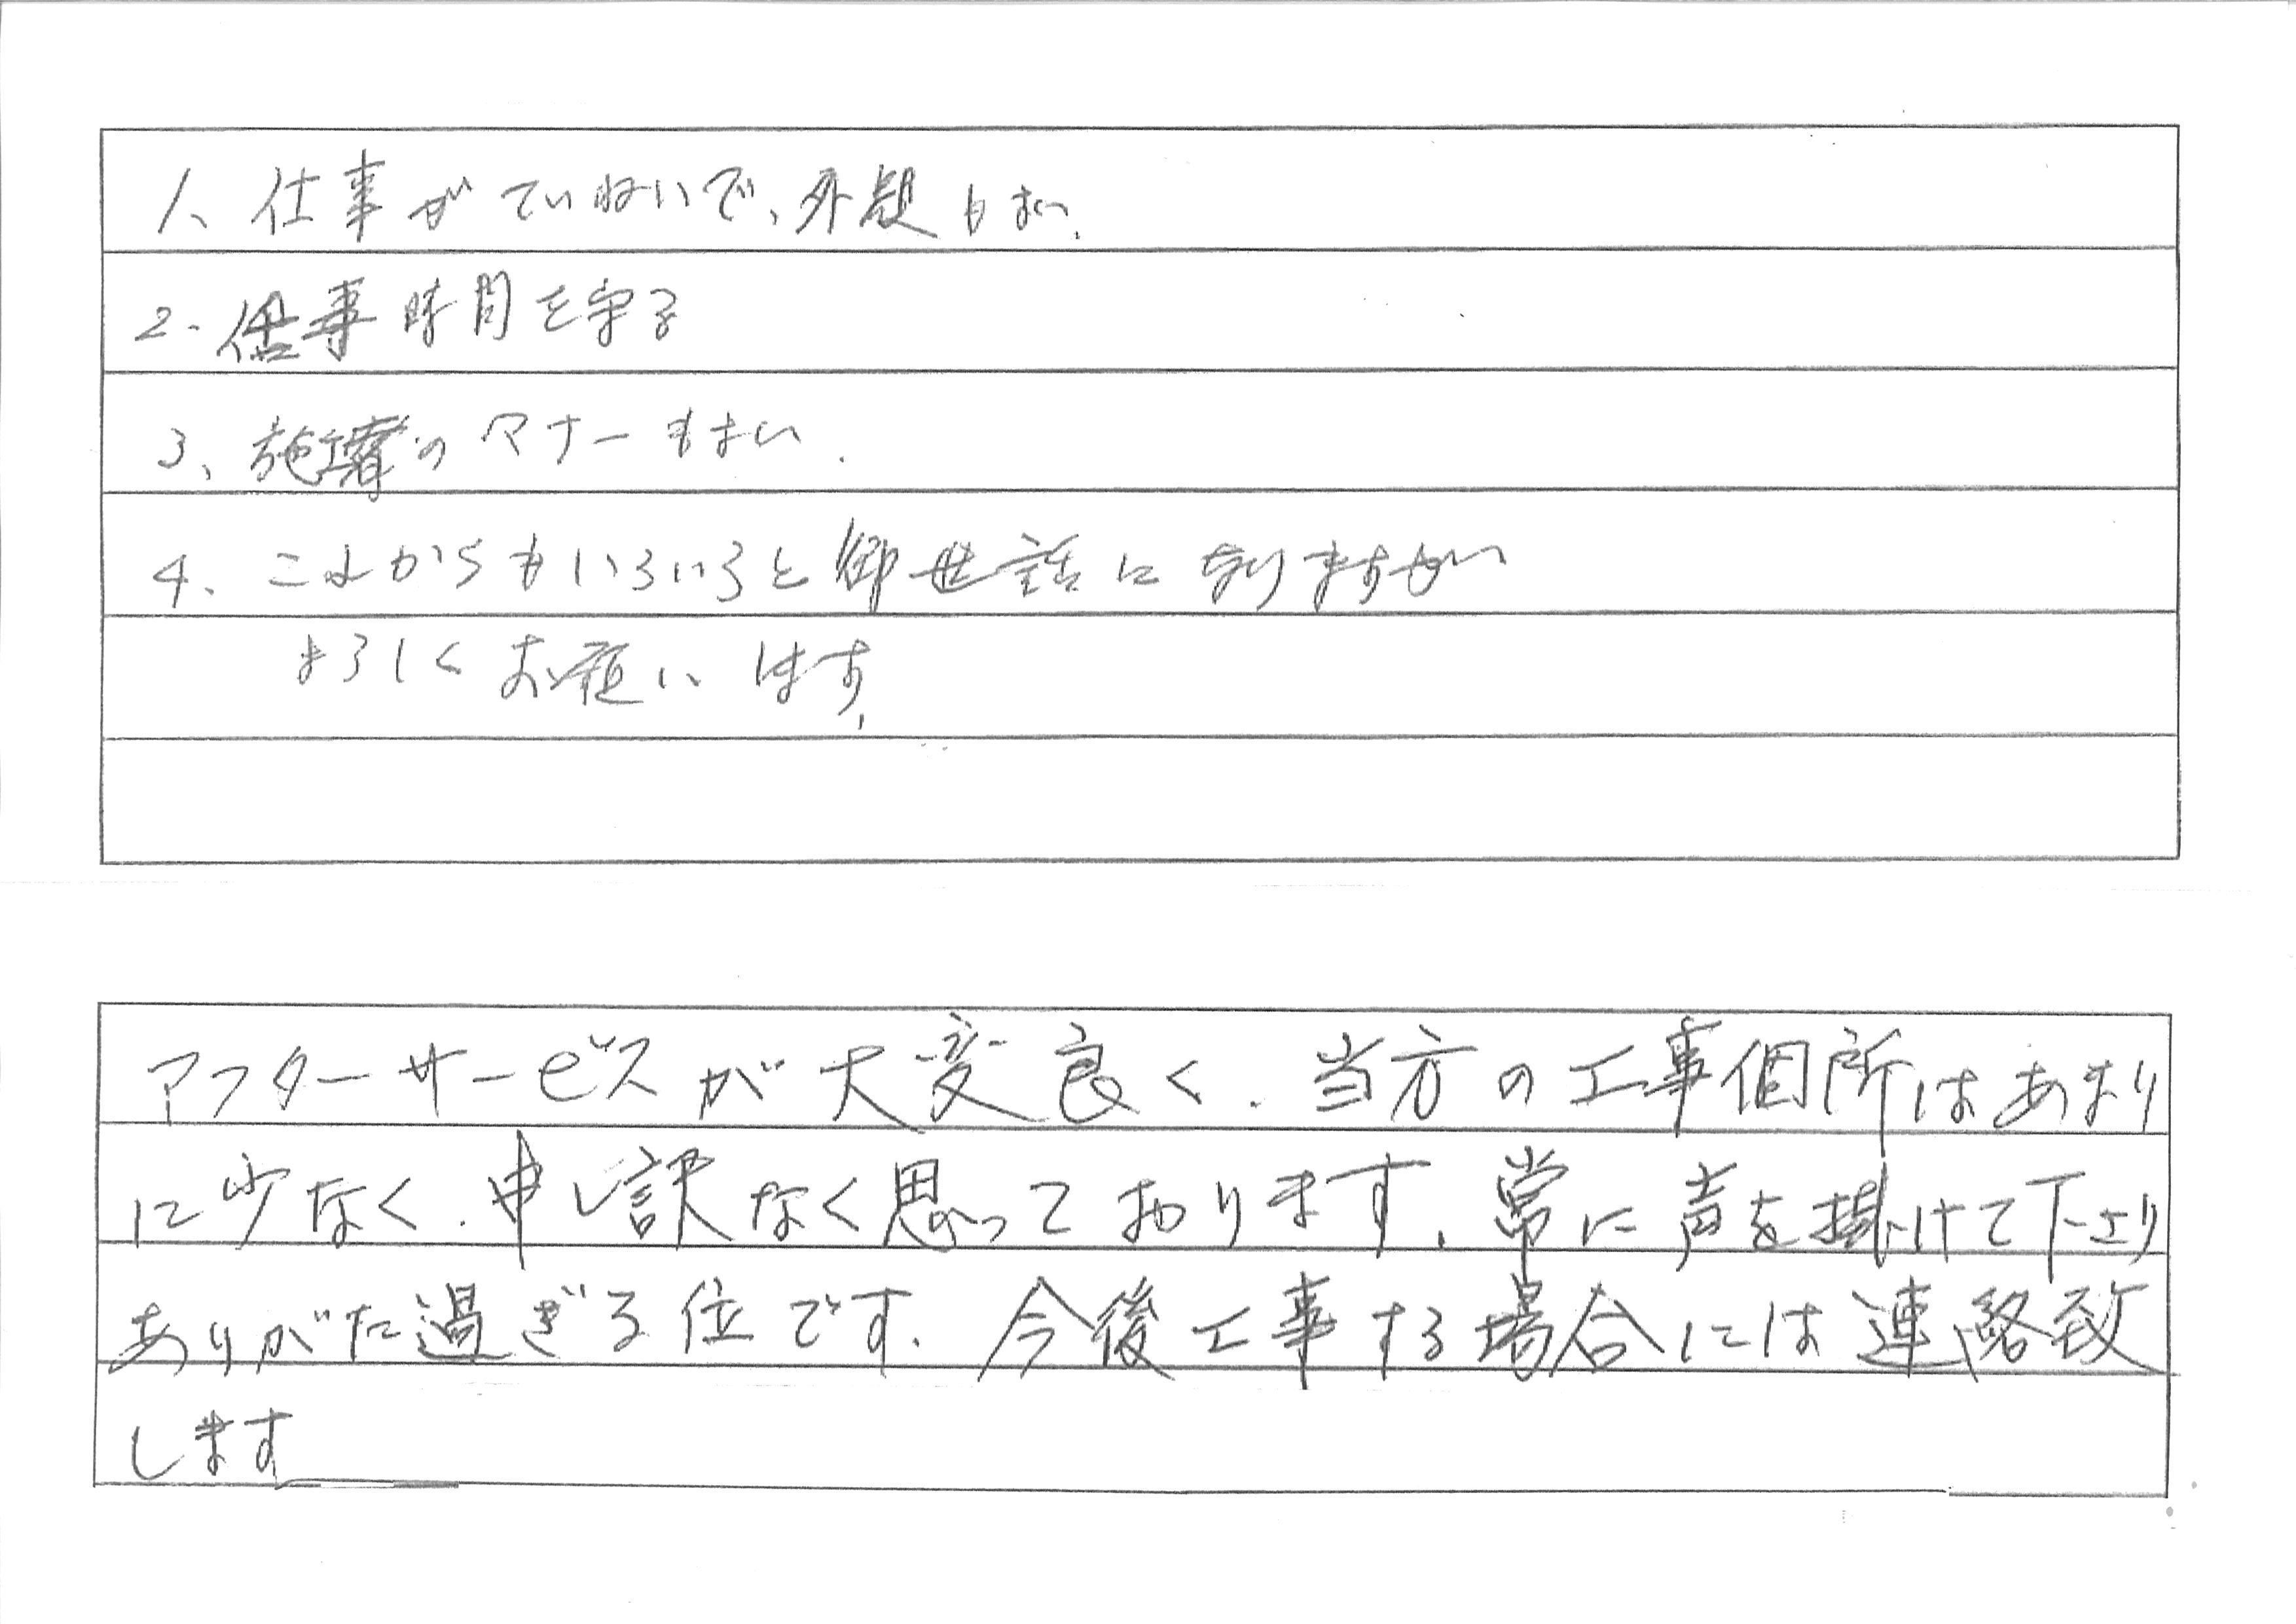 1、仕事がていねいで、外観もよい、
2. 仕事時間を守る
3、施工者のマナーもよい.
4、これからもいろいろと御世話になりますがい
よろしくお願います、
アフターサービスが大変良く、当方の工事個所はあまり
に少なく、申し訳なく思っております、常に声を掛けて下さり
ありがた過ぎる位です、今後工事する場合には連絡致
します